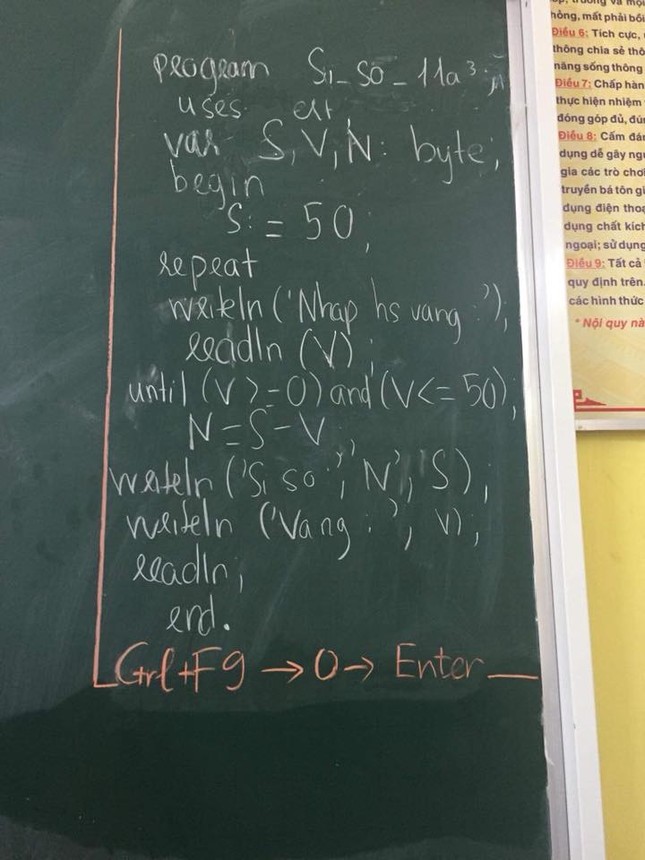 program Si_so_11a3;
uses crt;
var S,V,N: byte;
begin
S:=50;
repeat
writeln('Nhap hs vang:');
readln(V);
until(V>=0)and(V<=50);
N=S-V
writeln('Si so:','N','S);
writeln('Vang:',V);
readln;
end.
Ctrl+F9→0→Enter
nông, mất phải bồi
Điều 6: Tích cực,
thông chia sẻ thô
năng sống thông
Điều 7: Chấp hàn
thực hiện nhiệm
đóng góp đủ, đún
Điều 8: Cấm đán
dụng dễ gây ngu
gia các trò chơi
truyền bá tôn gi
dụng điện thoạ
dụng chất kích
ngoại; sử dụng
Điều 9: Tất cả
quy định trên.
các hình thức
* Nội quy nà